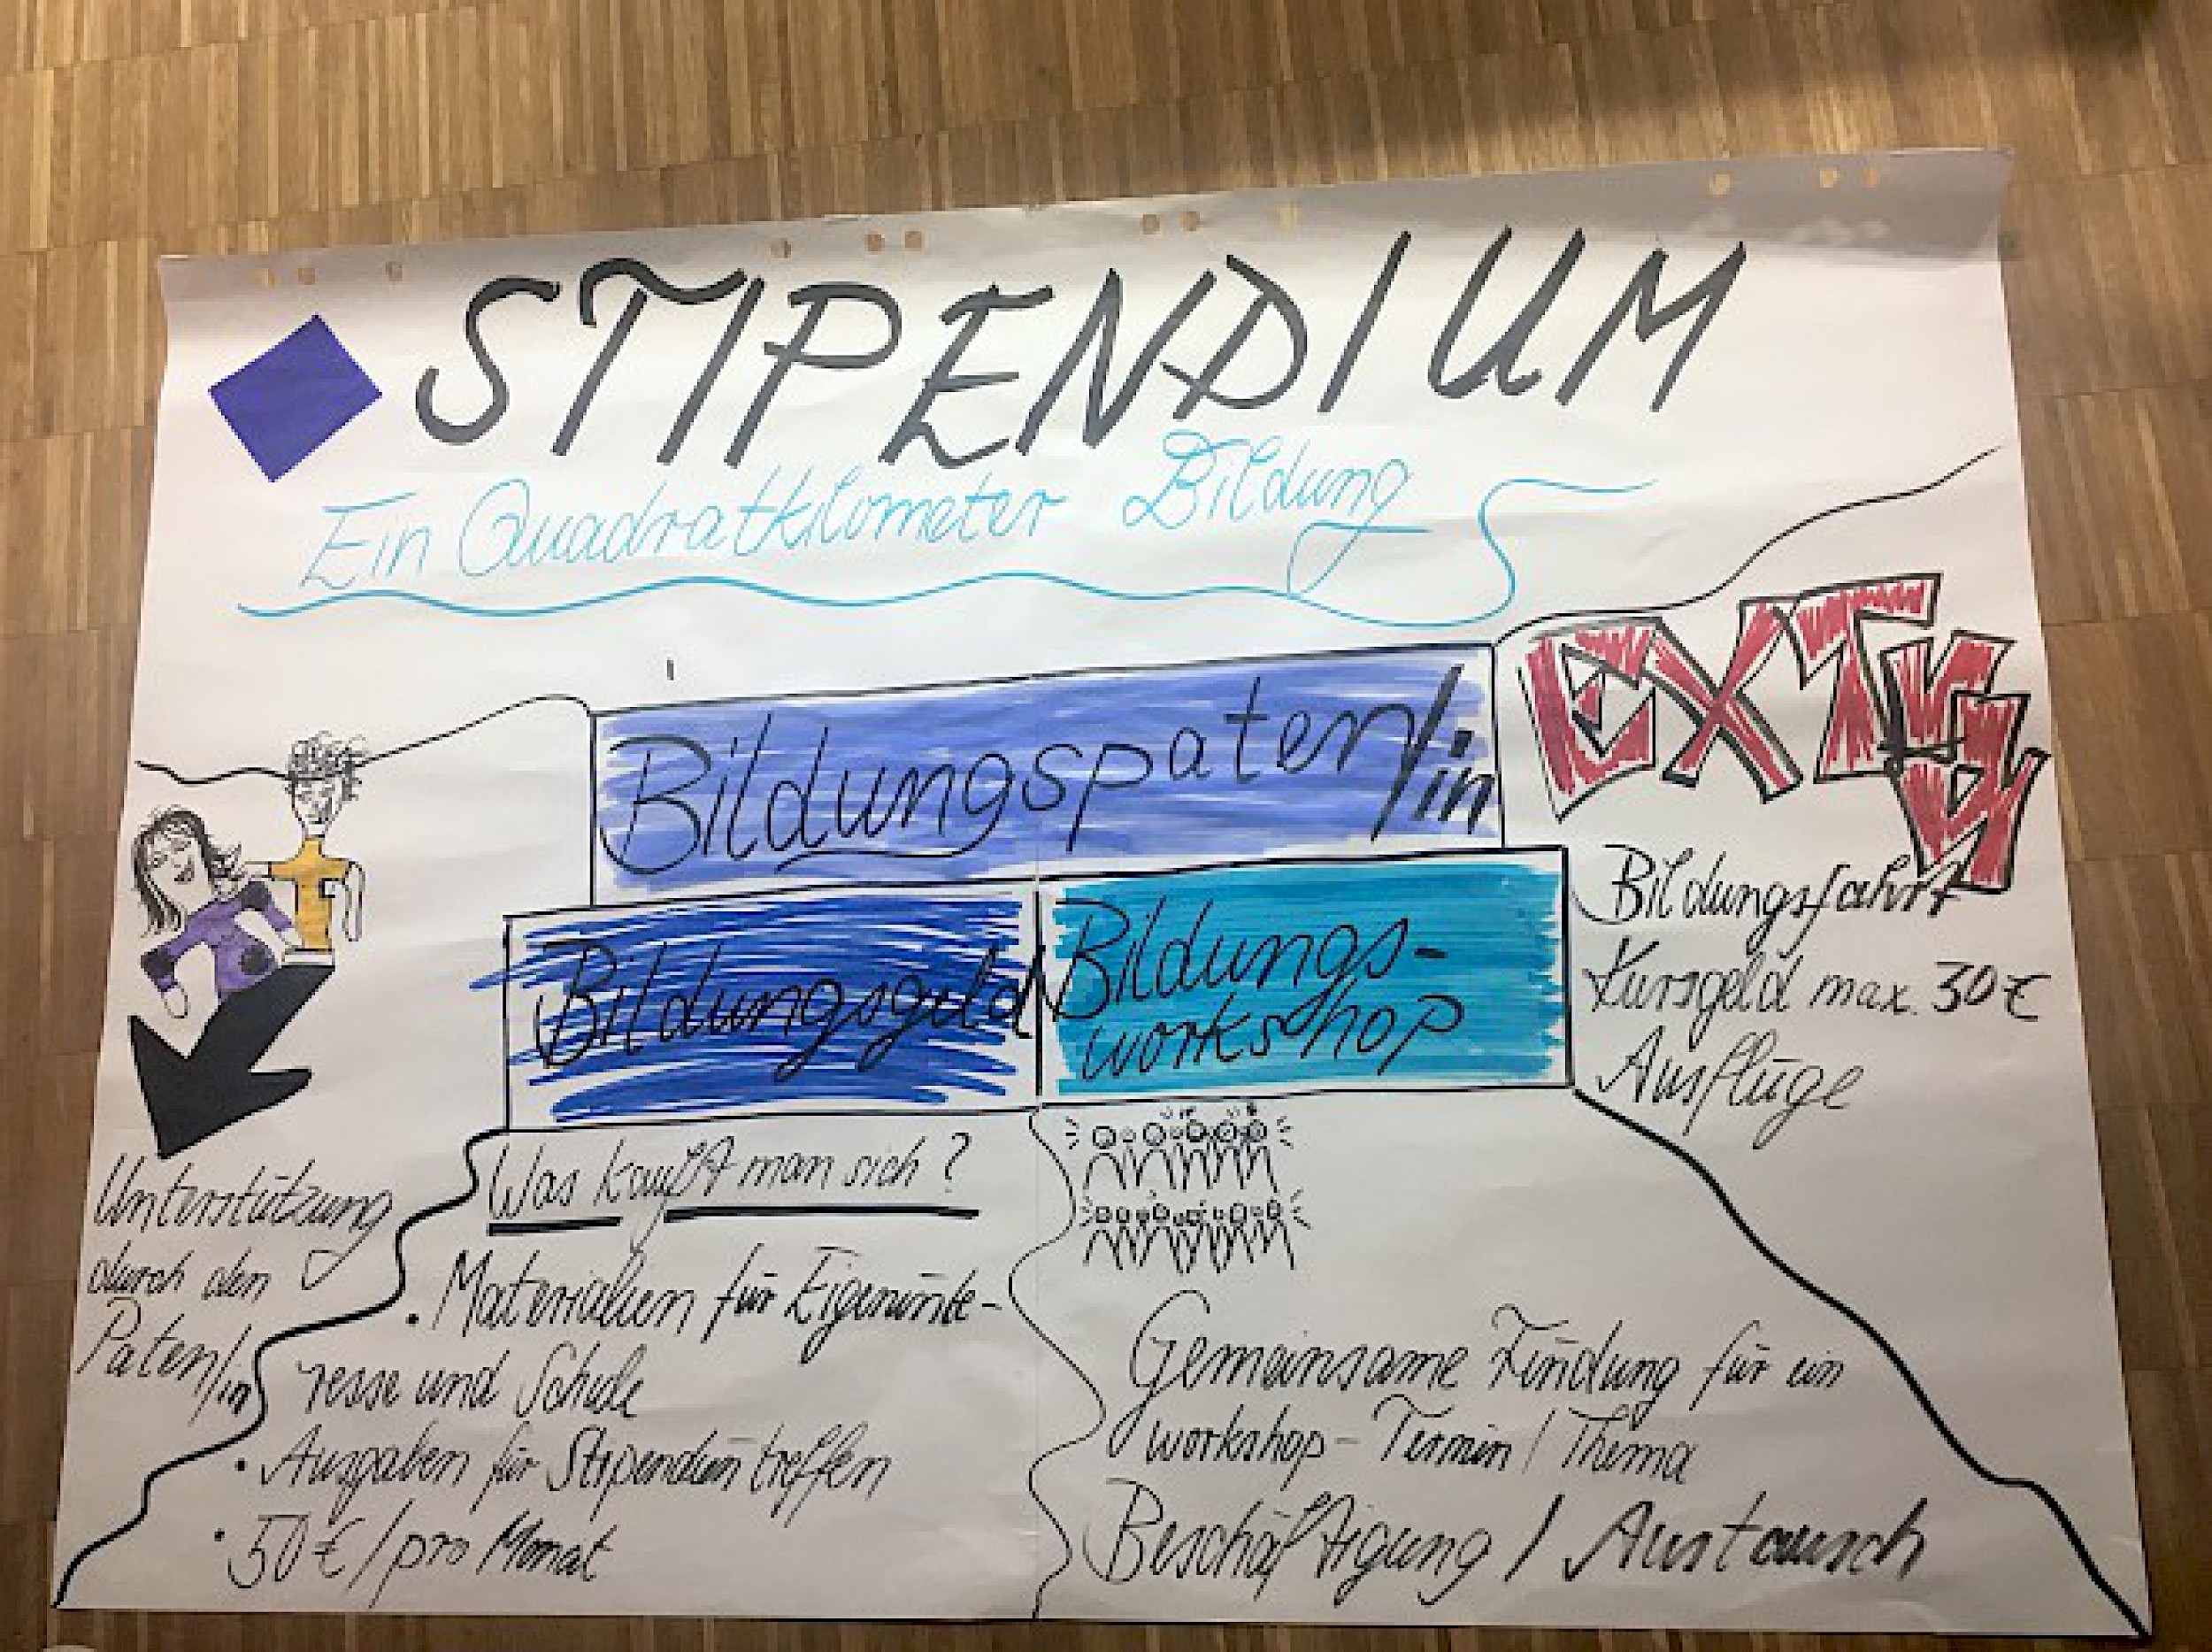 STIPENDIUM
Ein Quadratkilometer Bildung
Bildungspaten/in
EXTRA
Bildungsgeld
Bildungs-
workshop
Bildungsfahrt
Kursgeld max. 30€
Ausflüge
Unterstützung
durch den
Paten/in
Was kauft man sich?
• Materialien für Eigeninte-
resse und Schule
• Ausgaben für Stipendientreffen
• 50€/pro Monat
Gemeinsame Findung für ein
workshop-Termin/Thema
Beschäftigung / Austausch